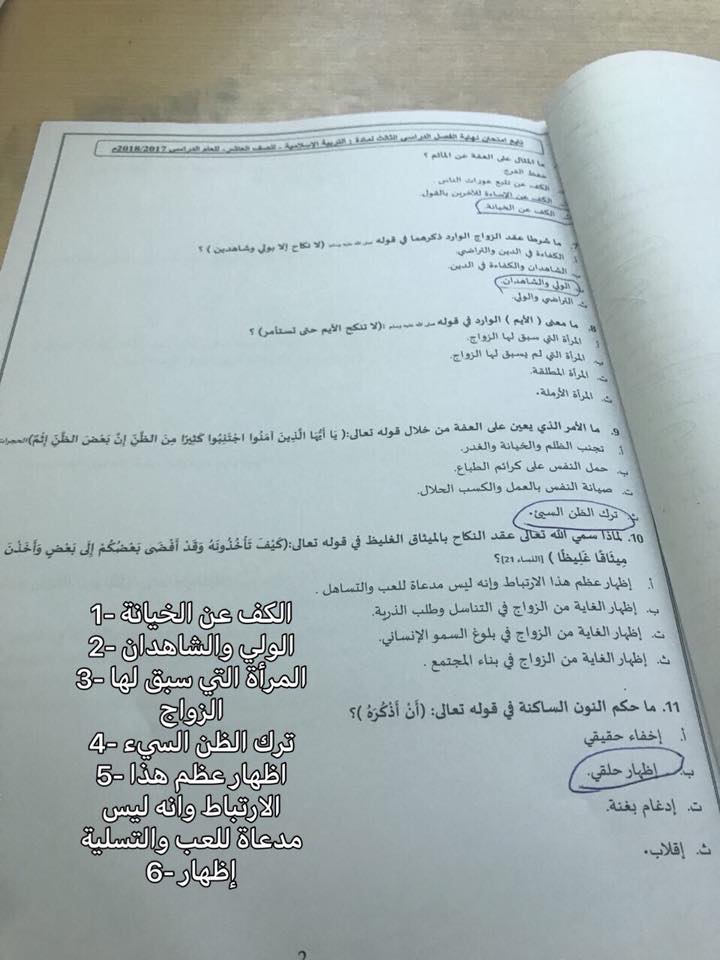 تابع امتحان نهاية الفصل الدراسي الثالث لمادة : التربية الإسلامية - للصف العاشر، للعام الدراسي 2018/2017م
ما المثال على العفة عن المآثم ؟
حفظ الفرج
الكف عن تتبع عورات الناس.
الكف عن الإساءة للآخرين بالقول
ث. الكف عن الخيانة.
7. ما شرطا عقد الزواج الوارد ذكرهما في قوله صلى الله عليه وسلم (لا نكاح إلا بولي وشاهدين ) ؟
أ. الكفاءة في الدين والتراضي.
ب. الشاهدان والكفاءة في الدين.
ت. الولي والشاهدان.
ث. التراضي والولي.
8. ما معنى ( الأيم ) الوارد في قوله صلى الله عليه وسلم :(لا تنكح الأيم حتى تستأمر) ؟
أ. المرأة التي سبق لها الزواج.
ب. المرأة التي لم يسبق لها الزواج.
ت. المرأة المطلقة.
ث. المرأة الأرملة.
9. ما الأمر الذي يعين على العفة من خلال قوله تعالى:( يَا أَيُّهَا الَّذِينَ آمَنُوا اجْتَنِبُوا كَثِيرًا مِنَ الظَّنِّ إِنَّ بَعْضَ الظَّنِّ إِثْمٌ)الحجرات
أ. تجنب الظلم والخيانة والغدر.
ب. حمل النفس على كرائم الطباع.
ت. صيانة النفس بالعمل والكسب الحلال.
ث. ترك الظن السيئ.
10. لماذا سمي الله تعالى عقد النكاح بالميثاق الغليظ في قوله تعالى:(كَيْفَ تَأْخُذُونَهُ وَقَدْ أَفْضَى بَعْضُكُمْ إِلَى بَعْضٍ وَأَخَذْنَ
مِيثَاقًا غَلِيظًا ) [النساء 21]؟
أ. إظهار عظم هذا الارتباط وإنه ليس مدعاة للعب والتساهل .
ب. إظهار الغاية من الزواج في التناسل وطلب الذرية.
ت. إظهار الغاية من الزواج في بلوغ السمو الإنساني.
ث. إظهار الغاية من الزواج في بناء المجتمع .
11. ما حكم النون الساكنة في قوله تعالى: (أَنْ أَذْكُرَهُ )؟
أ. إخفاء حقيقي
ب. إظهار حلقي.
ت. إدغام بغنة.
ث. إقلاب.
1- الكف عن الخيانة
2- الولي والشاهدان
3- المرأة التي سبق لها
الزواج
4- ترك الظن السيء
5- اظهار عظم هذا
الارتباط وانه ليس
مدعاة للعب والتسلية
6- إظهار
2